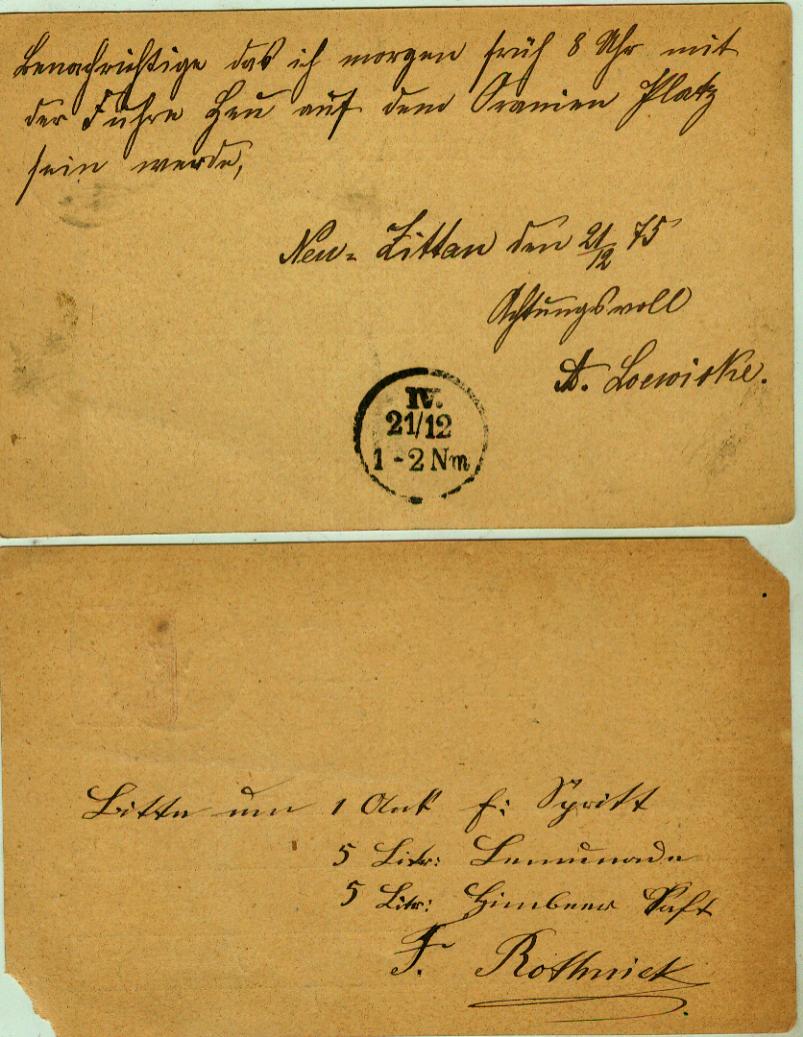 Benachrichtige das ich morgen früh 8 Uhr mit
der Fuhre Heu auf dem Oranien Platz
sein werde,
Neu-Zittau den 21/12 75
Achtungsvoll
A. Loewicke.
IV.
21/12
1-2 Nm
Bitte um 1 Ank f: Spritt
5 Litr: Lemunade
5 Litr: Himbeer Saft
F. Rothnick